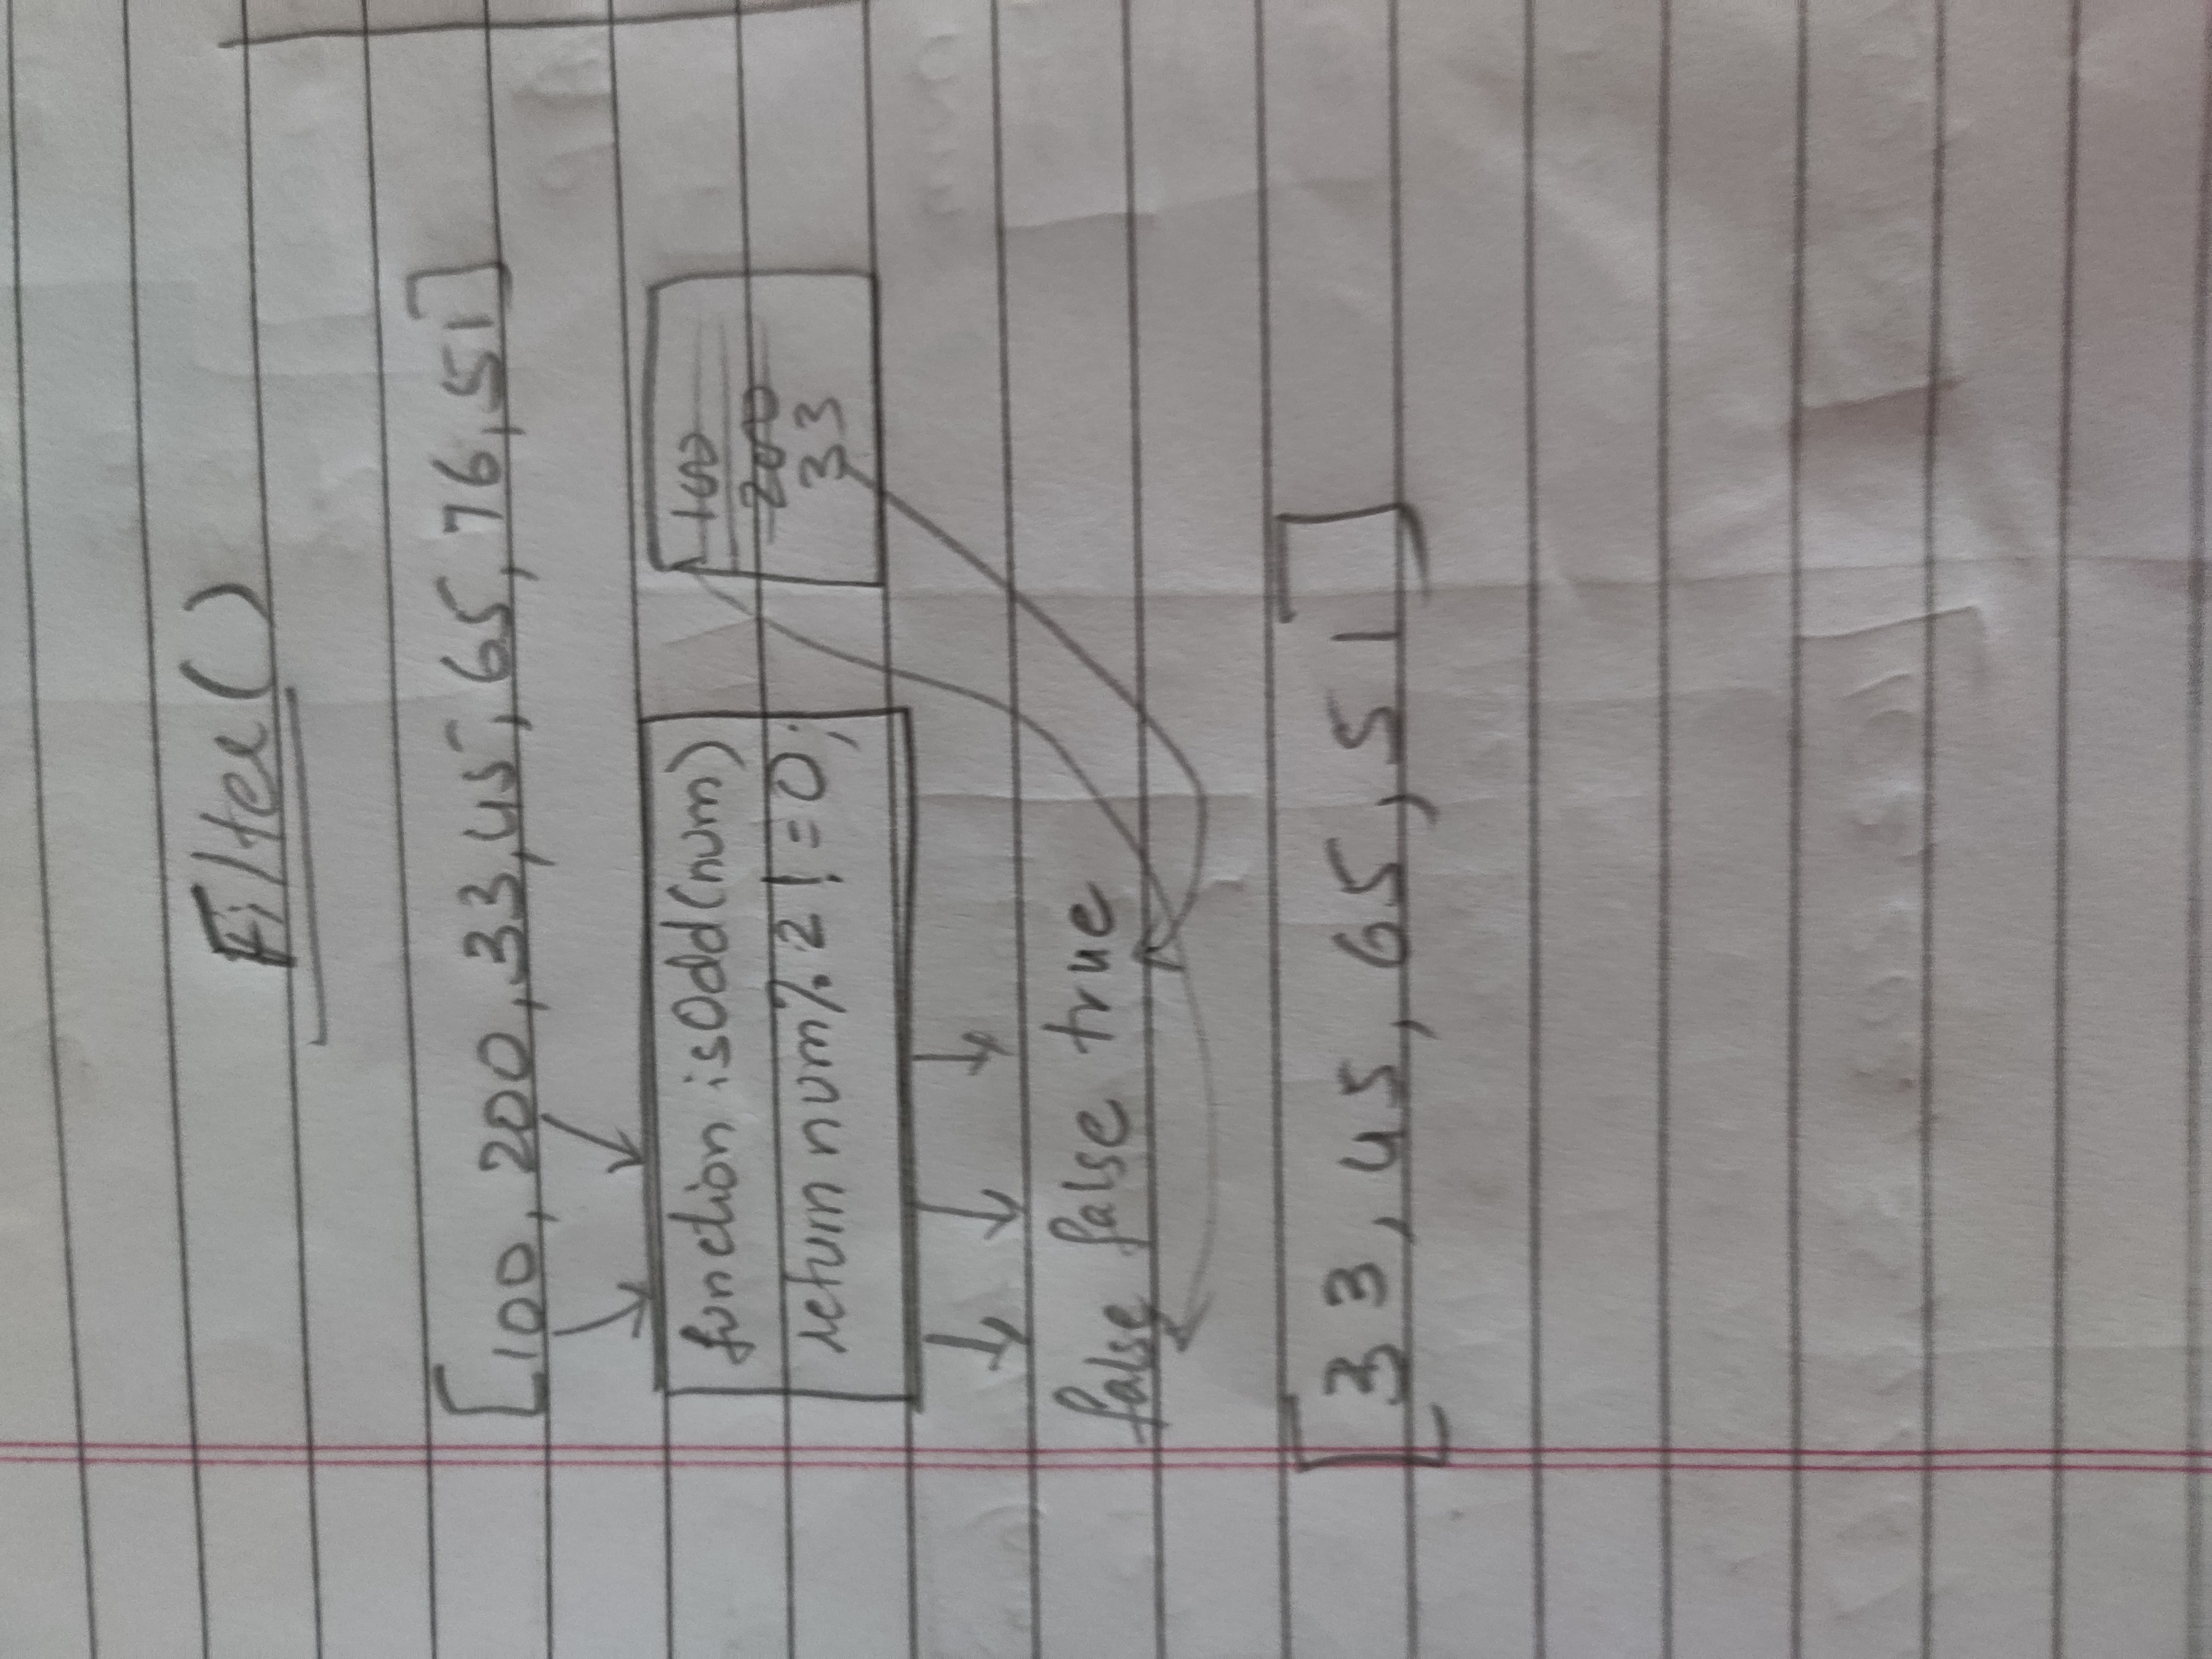 Filter()
[100, 200, 33, 45, 65, 76, 51]
function isOdd(num)
return num % 2 != 0;
100
200
33
false false true
[33, 45, 65, 51]